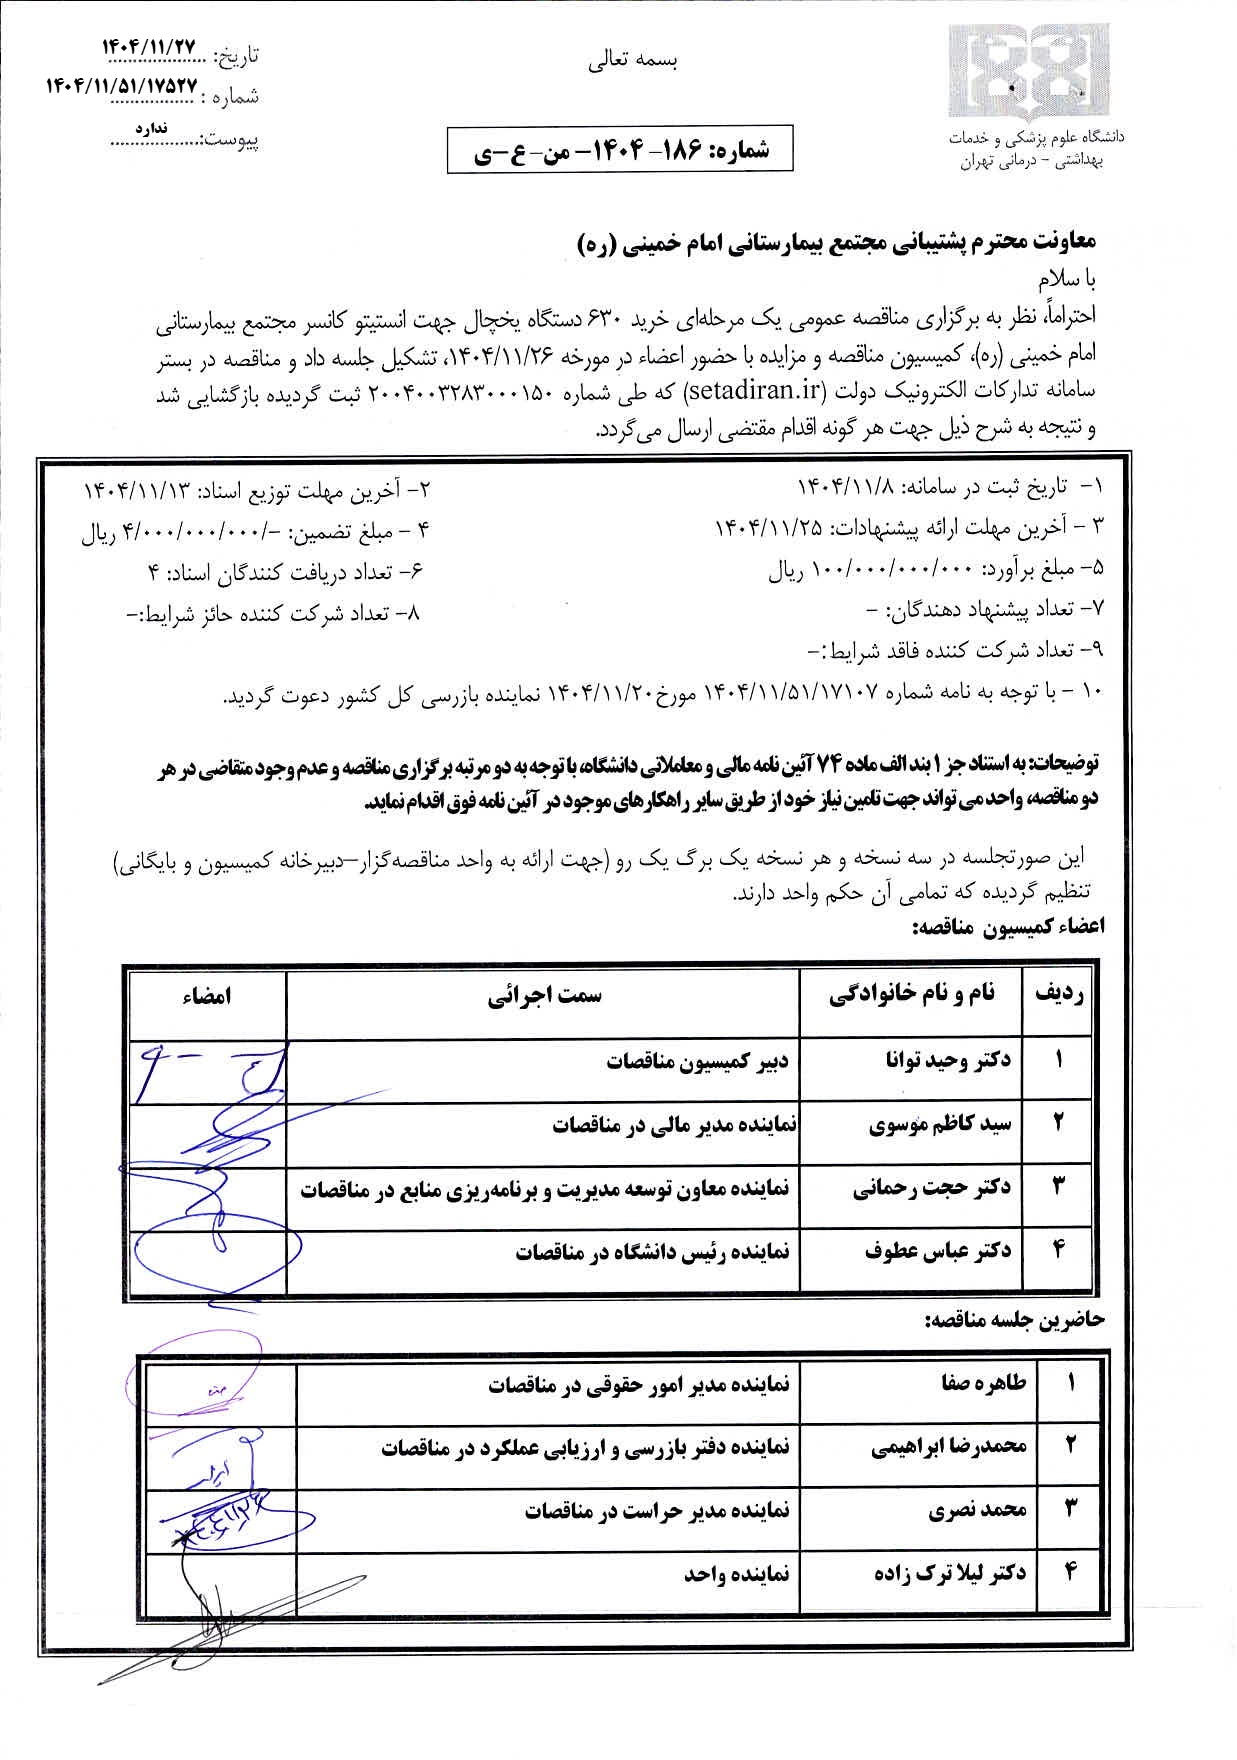 بسمه تعالی
تاریخ: ۱۴۰۴/۱۱/۲۷
شماره : ۱۴۰۴/۱۱/۵۱/۱۷۵۲۷
پیوست: ندارد
دانشگاه علوم پزشکی و خدمات
بهداشتی - درمانی تهران
شماره: ۱۸۶- ۱۴۰۴- من- ع-ی
معاونت محترم پشتیبانی مجتمع بیمارستانی امام خمینی (ره)
با سلام
احتراماً، نظر به برگزاری مناقصه عمومی یک مرحله‌ای خرید ۶۳۰ دستگاه یخچال جهت انستیتو کانسر مجتمع بیمارستانی
امام خمینی (ره)، کمیسیون مناقصه و مزایده با حضور اعضاء در مورخه ۱۴۰۴/۱۱/۲۶، تشکیل جلسه داد و مناقصه در بستر
سامانه تدارکات الکترونیک دولت (setadiran.ir) که طی شماره ۲۰۰۴۰۰۳۲۸۳۰۰۰۱۵۰ ثبت گردیده بازگشایی شد
و نتیجه به شرح ذیل جهت هر گونه اقدام مقتضی ارسال می‌گردد.
۱- تاریخ ثبت در سامانه: ۱۴۰۴/۱۱/۸ ۲- آخرین مهلت توزیع اسناد: ۱۴۰۴/۱۱/۱۳
۳ - آخرین مهلت ارائه پیشنهادات: ۱۴۰۴/۱۱/۲۵ ۴ - مبلغ تضمین: -/۴/۰۰۰/۰۰۰/۰۰۰ ریال
۵- مبلغ برآورد: ۱۰۰/۰۰۰/۰۰۰/۰۰۰ ریال ۶- تعداد دریافت کنندگان اسناد: ۴
۷- تعداد پیشنهاد دهندگان: - ۸- تعداد شرکت کننده حائز شرایط:-
۹- تعداد شرکت کننده فاقد شرایط:-
۱۰ - با توجه به نامه شماره ۱۴۰۴/۱۱/۵۱/۱۷۱۰۷ مورخ ۱۴۰۴/۱۱/۲۰ نماینده بازرسی کل کشور دعوت گردید.
توضیحات: به استناد جز ۱ بند الف ماده ۷۴ آئین نامه مالی و معاملاتی دانشگاه، با توجه به دو مرتبه برگزاری مناقصه و عدم وجود متقاضی در هر
دو مناقصه، واحد می تواند جهت تامین نیاز خود از طریق سایر راهکارهای موجود در آئین نامه فوق اقدام نماید.
این صورتجلسه در سه نسخه و هر نسخه یک برگ یک رو (جهت ارائه به واحد مناقصه‌گزار-دبیرخانه کمیسیون و بایگانی)
تنظیم گردیده که تمامی آن حکم واحد دارند.
اعضاء کمیسیون مناقصه:
ردیف نام و نام خانوادگی سمت اجرائی امضاء
۱ دکتر وحید توانا دبیر کمیسیون مناقصات
۲ سید کاظم موسوی نماینده مدیر مالی در مناقصات
۳ دکتر حجت رحمانی نماینده معاون توسعه مدیریت و برنامه‌ریزی منابع در مناقصات
۴ دکتر عباس عطوف نماینده رئیس دانشگاه در مناقصات
حاضرین جلسه مناقصه:
۱ طاهره صفا نماینده مدیر امور حقوقی در مناقصات
۲ محمدرضا ابراهیمی نماینده دفتر بازرسی و ارزیابی عملکرد در مناقصات
۳ محمد نصری نماینده مدیر حراست در مناقصات
۴ دکتر لیلا ترک زاده نماینده واحد